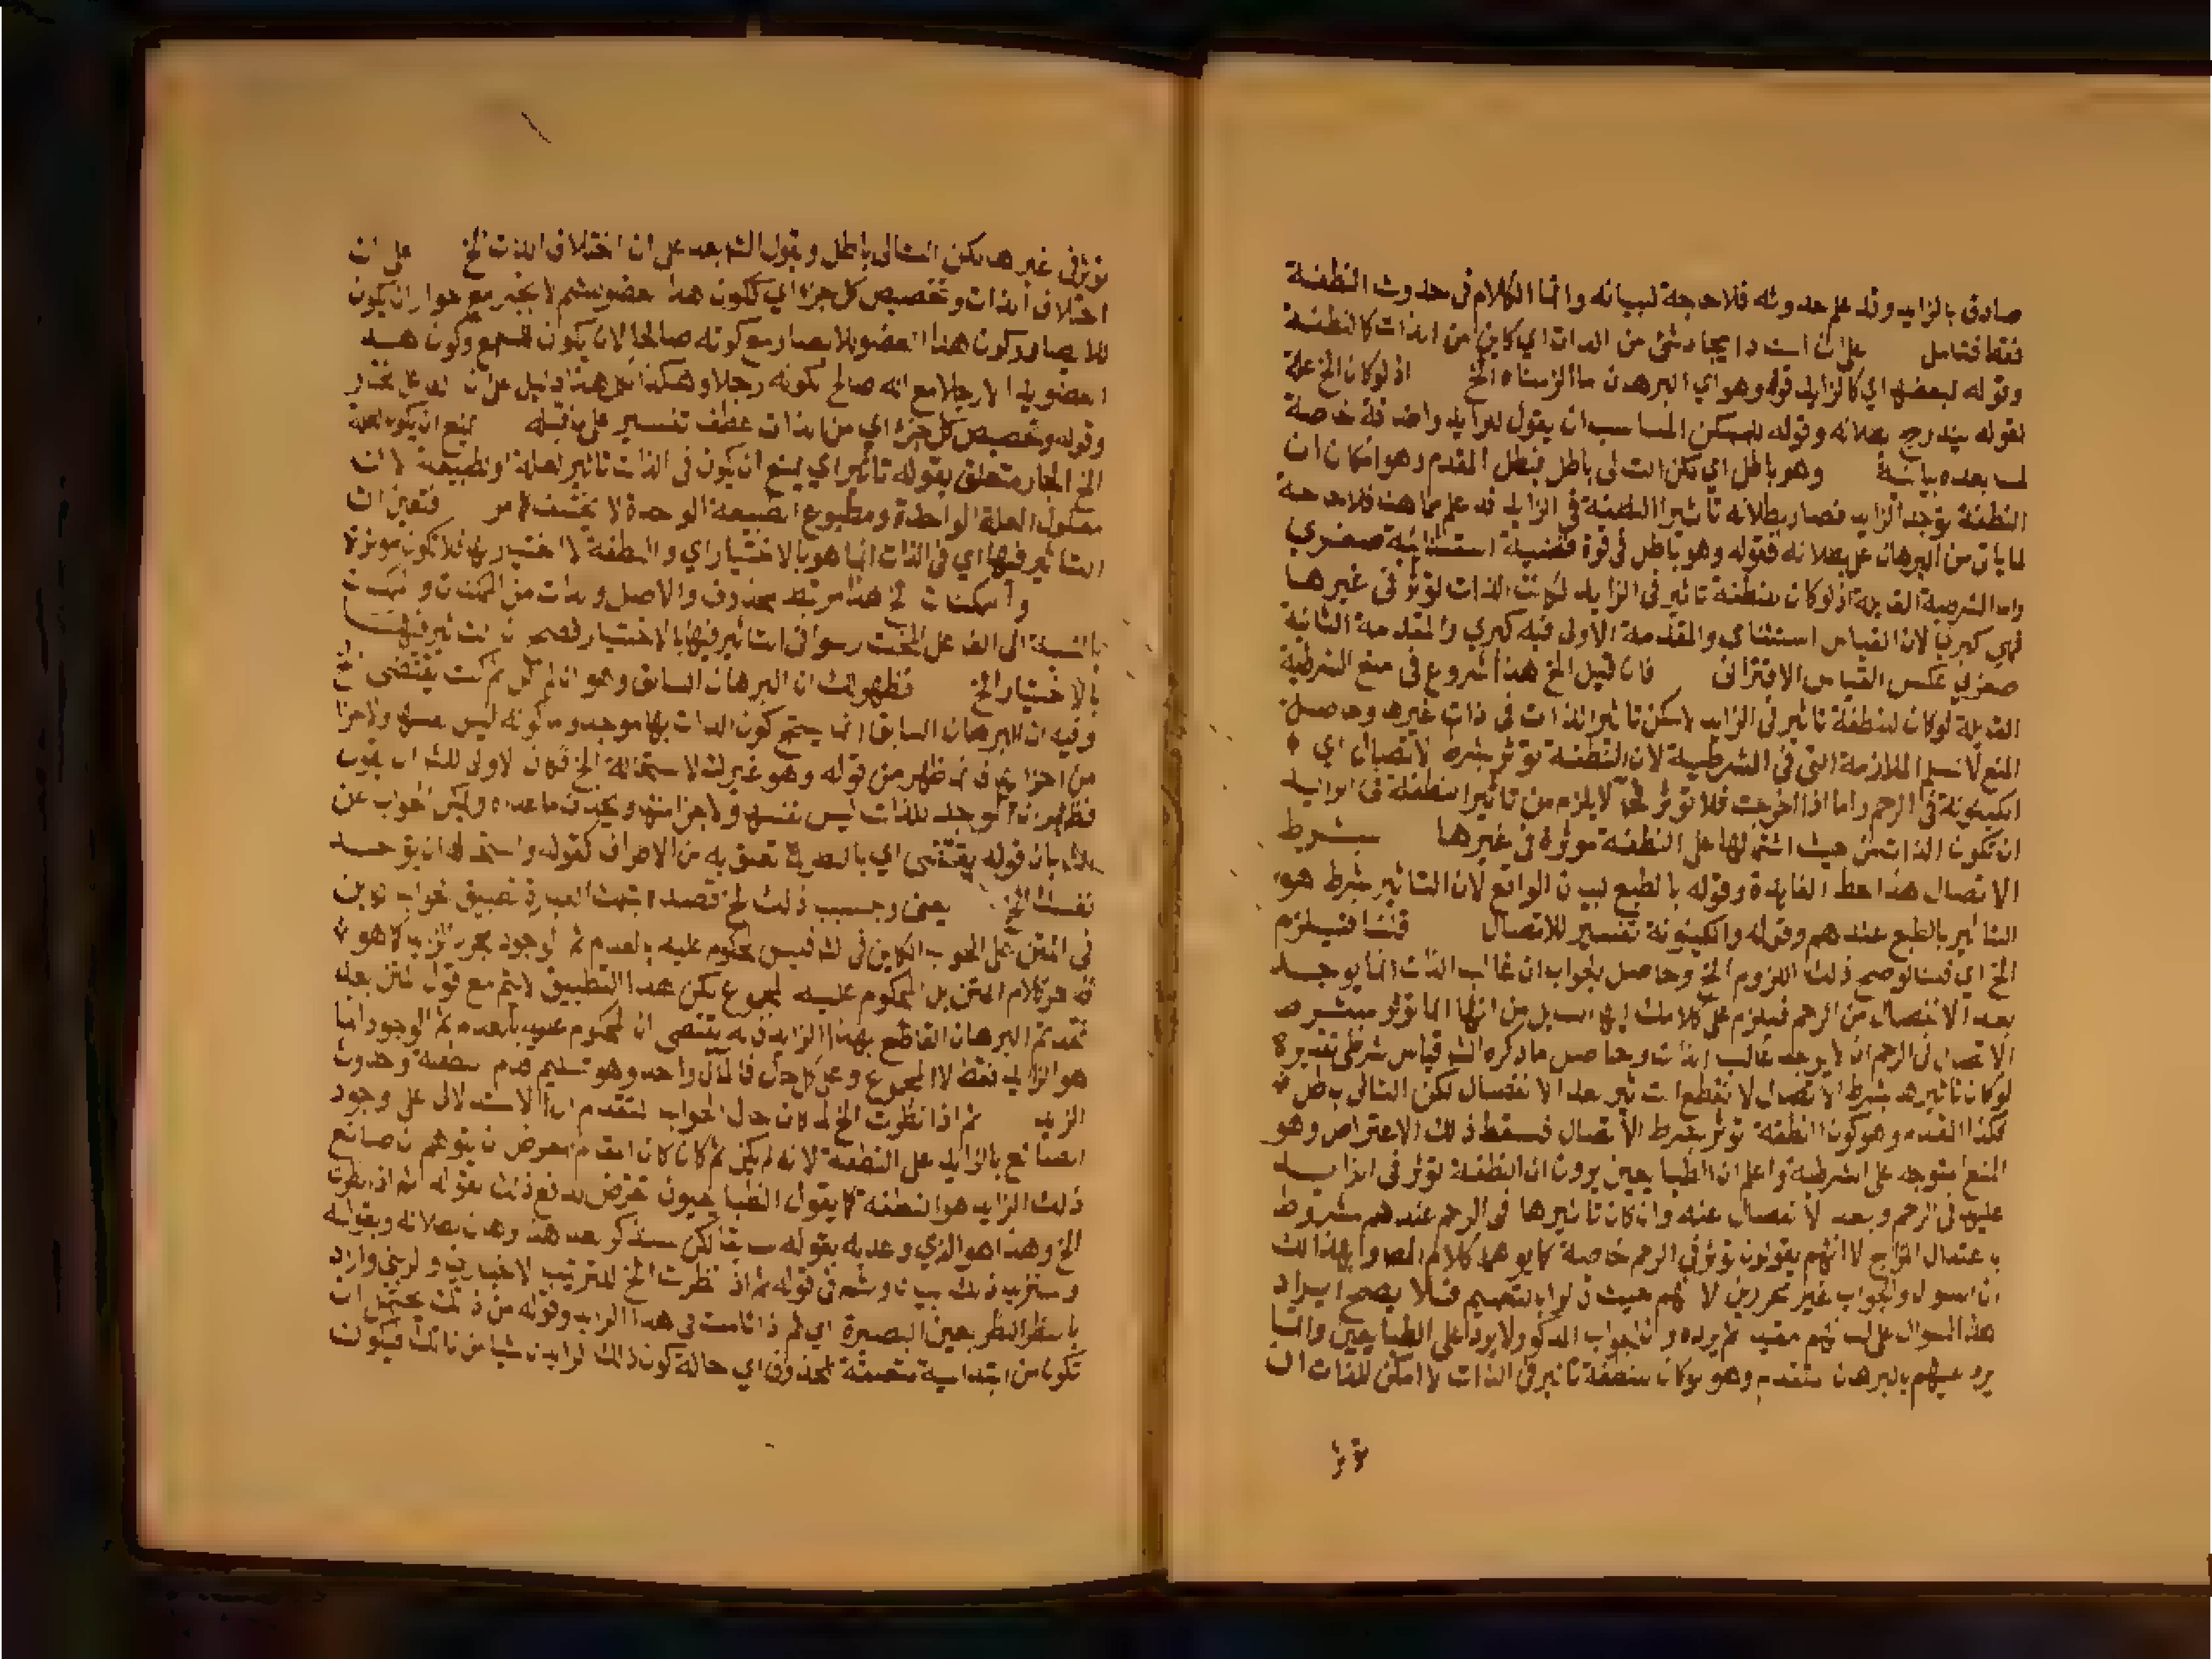 صادق بالزايد وقد علم حدوثه فلا حاجة لبيانه وانما الكلام في حدوث النطفة
فقط فتامل على ان اسناد ايجاد شئ من الذات اي كاين من الذات كالنطفة
وقوله لبعضها اي كالزايد قوله وهو اي البرهان ما الزمناه الخ اذ لو كان الخ علة
لقوله يندرج بطلانه وقوله للممكن المناسب ان يقول للزايد واضافة خاصة
لما بعده بيانية وهو باطل اي لكن التالي باطل فبطل المقدم وهو امكان ان
النطفة توجد الزايد فصار بطلانه تاثير النطفة في الزايد قد علم مما هنا فلا حاجة
لما يأتي من البرهان على بطلانه فقوله وهو باطل في قوة قضية استثنائية صغرى
واما الشرطية القايلة اذ لو كان للنطفة تاثير في الزايد لكانت الذات تؤثر في غيرها
فهي كبرى لان القياس استثنائي والمقدمة الاولى فيه كبرى والمقدمة الثانية
صغرى عكس القياس الاقتراني فان قيل الخ هذا شروع في منع الشرطية
القايلة لو كان للنطفة تاثير في الزايد لامكن تاثير الذات في ذات غيرها وحاصل
المنع لا نسلم الملازمة التي في الشرطية لان النطفة توثر بشرط الاتصال اي
الكينونة في الرحم واما اذا اخرجت فلا توثر لا يلزم من تاثير النطفة في الزايد
ان تكون الذات من حيث اشتمالها على النطفة موثرة في غيرها بشرط
الاتصال هذا محط الفايدة وقوله بالطبع لبيان الواقع لان التاثير بشرط هو
التاثير بالطبع عندهم وقوله والكينونة تفسير للاتصال قلنا فيلزم
الخ اي قلنا لو صح ذلك اللزوم الخ وحاصل الجواب ان غالب الذات انما يوجد
بعد الانفصال من الرحم فيلزم على كلامك ايها من انها انما توثر بشرط
الاتصال في الرحم ان لا يوجد غالب الذات وحاصل ما ذكره الش قياس شرطي تقديره
لو كان تاثيرها بشرط الاتصال لانقطع التاثير بعد الانفصال لكن التالي باطل
فكذا المقدم وهو كون النطفة توثر بشرط الاتصال فسقط ذلك الاعتراض وهو
المنع المتوجه على الشرطية واعلم ان الطبايعيين يرون ان النطفة توثر في الزايد
عليها في الرحم وبعد الانفصال عنه وان كان تاثيرها في الرحم عندهم مشروط
باعتدال المزاج لا انهم يقولون توثر في الرحم خاصة كما يوهمه كلام المص وبهذا لك
ان السوال والجواب غير محررين لانهم حيث قالوا بالتعميم فلا يصح ايراد
هذا السوال على لسانهم وان الجواب المذكور لا يرد على الطبايعيين وانما
يرد عليهم بالبرهان المتقدم وهو لو كان للنطفة تاثير في الذات لامكن للذات ان
تؤثر
تؤثر في غيرها لكن التالي باطل وبقول الش بعد على ان اختلاف الذات الخ على ان
اختلاف الذات وتخصيص كل جزء اي ككون هذا عضو للشم لا لغيره مع جواز ان يكون
للابصار وكون هذا العضو للابصار مع كونه صالحا لان يكون للسمع وكون هذا
العضو يدا لا رجلا مع انه صالح لكونه رجلا وهكذا كل هذا دليل على ان
وقوله وتخصيص كل جزء اي من الذات عطف تفسير على ما قبله فيمنع ان يكون لعلة
الخ الجار متعلق بقوله تاثير اي يمنع ان يكون في الذات تاثير لعلة او طبيعة لان
معلول العلة الواحدة ومطبوع الطبيعة الواحدة لا يختلف فتعين ان
التاثير فيها اي في الذات انما هو بالاختيار اي والنطفة لا اختيار لها فلا تكون موثرة
والممكنات الخ هذا مرتبط بمحذوف والاصل والذات من الممكنات والممكنات
بالنسبة الى الفاعل المختار سواء في التاثير فيها بالاختيار فصح ان التاثير فيها
بالاختيار الخ فظهر لك ان البرهان السابق وهو انا لم نكن ثم كنا يقتضي الخ
وفيه ان البرهان السابق انما ينتج كون الذات لها موجد واما كونه ليس نفسها ولا جزء
من اجزائها فانما ظهر من قوله وهو غيرك لاستحالة الخ فكان الاولى للش ان يقول
فظهر ان الموجد للذات ليس نفسها ولا جزء منها ويحذف ما عداه ويمكن الجواب عن
بان قوله يقتضي اي بالنظر لما تعلق به من الاطراف كقوله واستحالة ان توجد
نفسك الخ يعني وحسب ذلك الخ قصد بتلك العبارة تطبيق الجواب الكاين
في المتن على الجواب الكاين في فليس المحكوم عليه بالعدم ثم الوجود مجرد الزايد كما هو
ظاهر كلام المتن بل المحكوم عليه المجموع لكن هذا التطبيق لا يتم مع قول المتن بعد
فقد تم البرهان القاطع بهذا الزايد فانه يقتضي ان المحكوم عليه بالعدم ثم الوجود انما
هو الزايد فقط لا المجموع وعلى كل حال فالمآل واحد وهو تسليم قدم النطفة وحدوث
الزايد ثم اذا نظرت الخ لما كان حال الجواب المتقدم الاستدلال على وجود
الصانع بالزايد على النطفة لانه لم يكن ثم كان كان المقام معرض ان يتوهم ان صانع
ذلك الزايد هو النطفة كما يقول الطبايعيون تعرض لدفع ذلك بقوله ثم اذا نظرت
الخ وهذا هو الذي وعد به بقوله سابقا لكن سنذكر بعد هذا وهذا بطلانه وبقوله
وسنزيد ذلك بيانا وثم في قوله ثم اذا نظرت الخ للترتيب الاخباري والرتبي واراد
بالنظر النظر بعين البصيرة اي ثم اذا تاملت في هذا الزايد وقوله من ذلك يحتمل ان
تكون من ابتدائية متعلقة بمحذوف اي حالة كون ذلك الزايد ناشيا من ذاتك فيكون